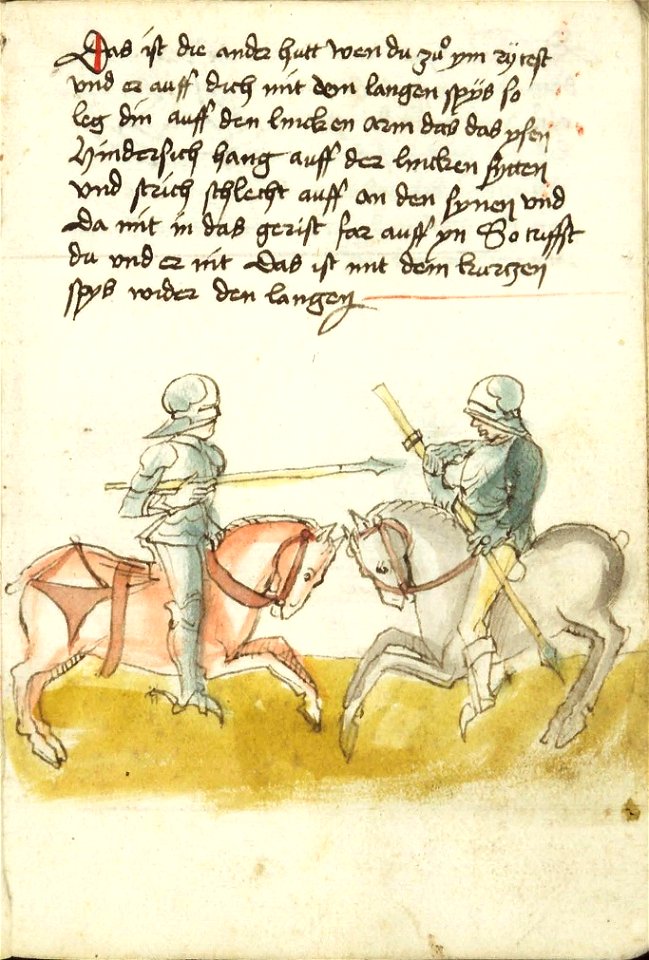 Das ist die ander hutt wen du zuͦ ym rÿtest
vnd er auff dich mit dem langen spÿs so
leg din auff den lincken arm das das ysen
hindersich hang auff der lincken sytten
vnd strich schlecht auff an den synen vnd
da mit in das gerist far auff yn So triffst
du vnd er nit Das ist mit dem kurtzen
spÿs wider den langen